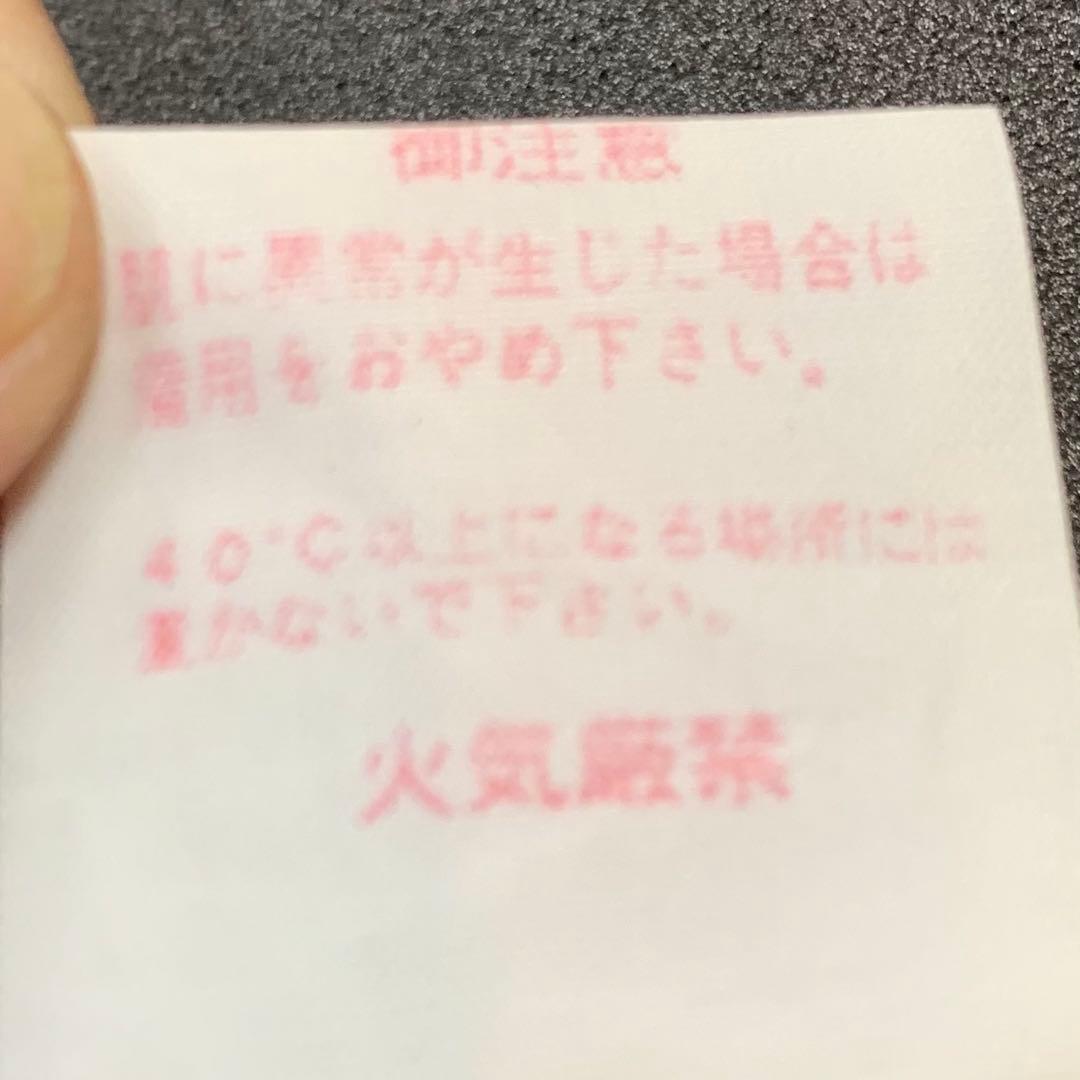 御注意
肌に異常が生じた場合は
着用をおやめ下さい。
40°C以上になる場所には
置かないで下さい。
火気厳禁